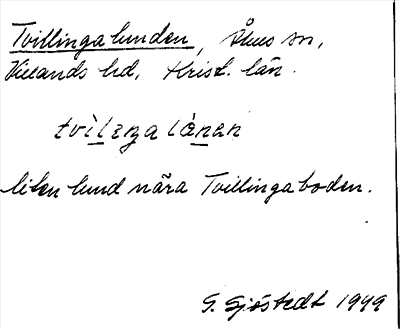 Tvillingalunden, Åhus sn,
Villands hd, Krist. län.
liten lund nära Tvillingaboden.
G. Sjöstedt 1949